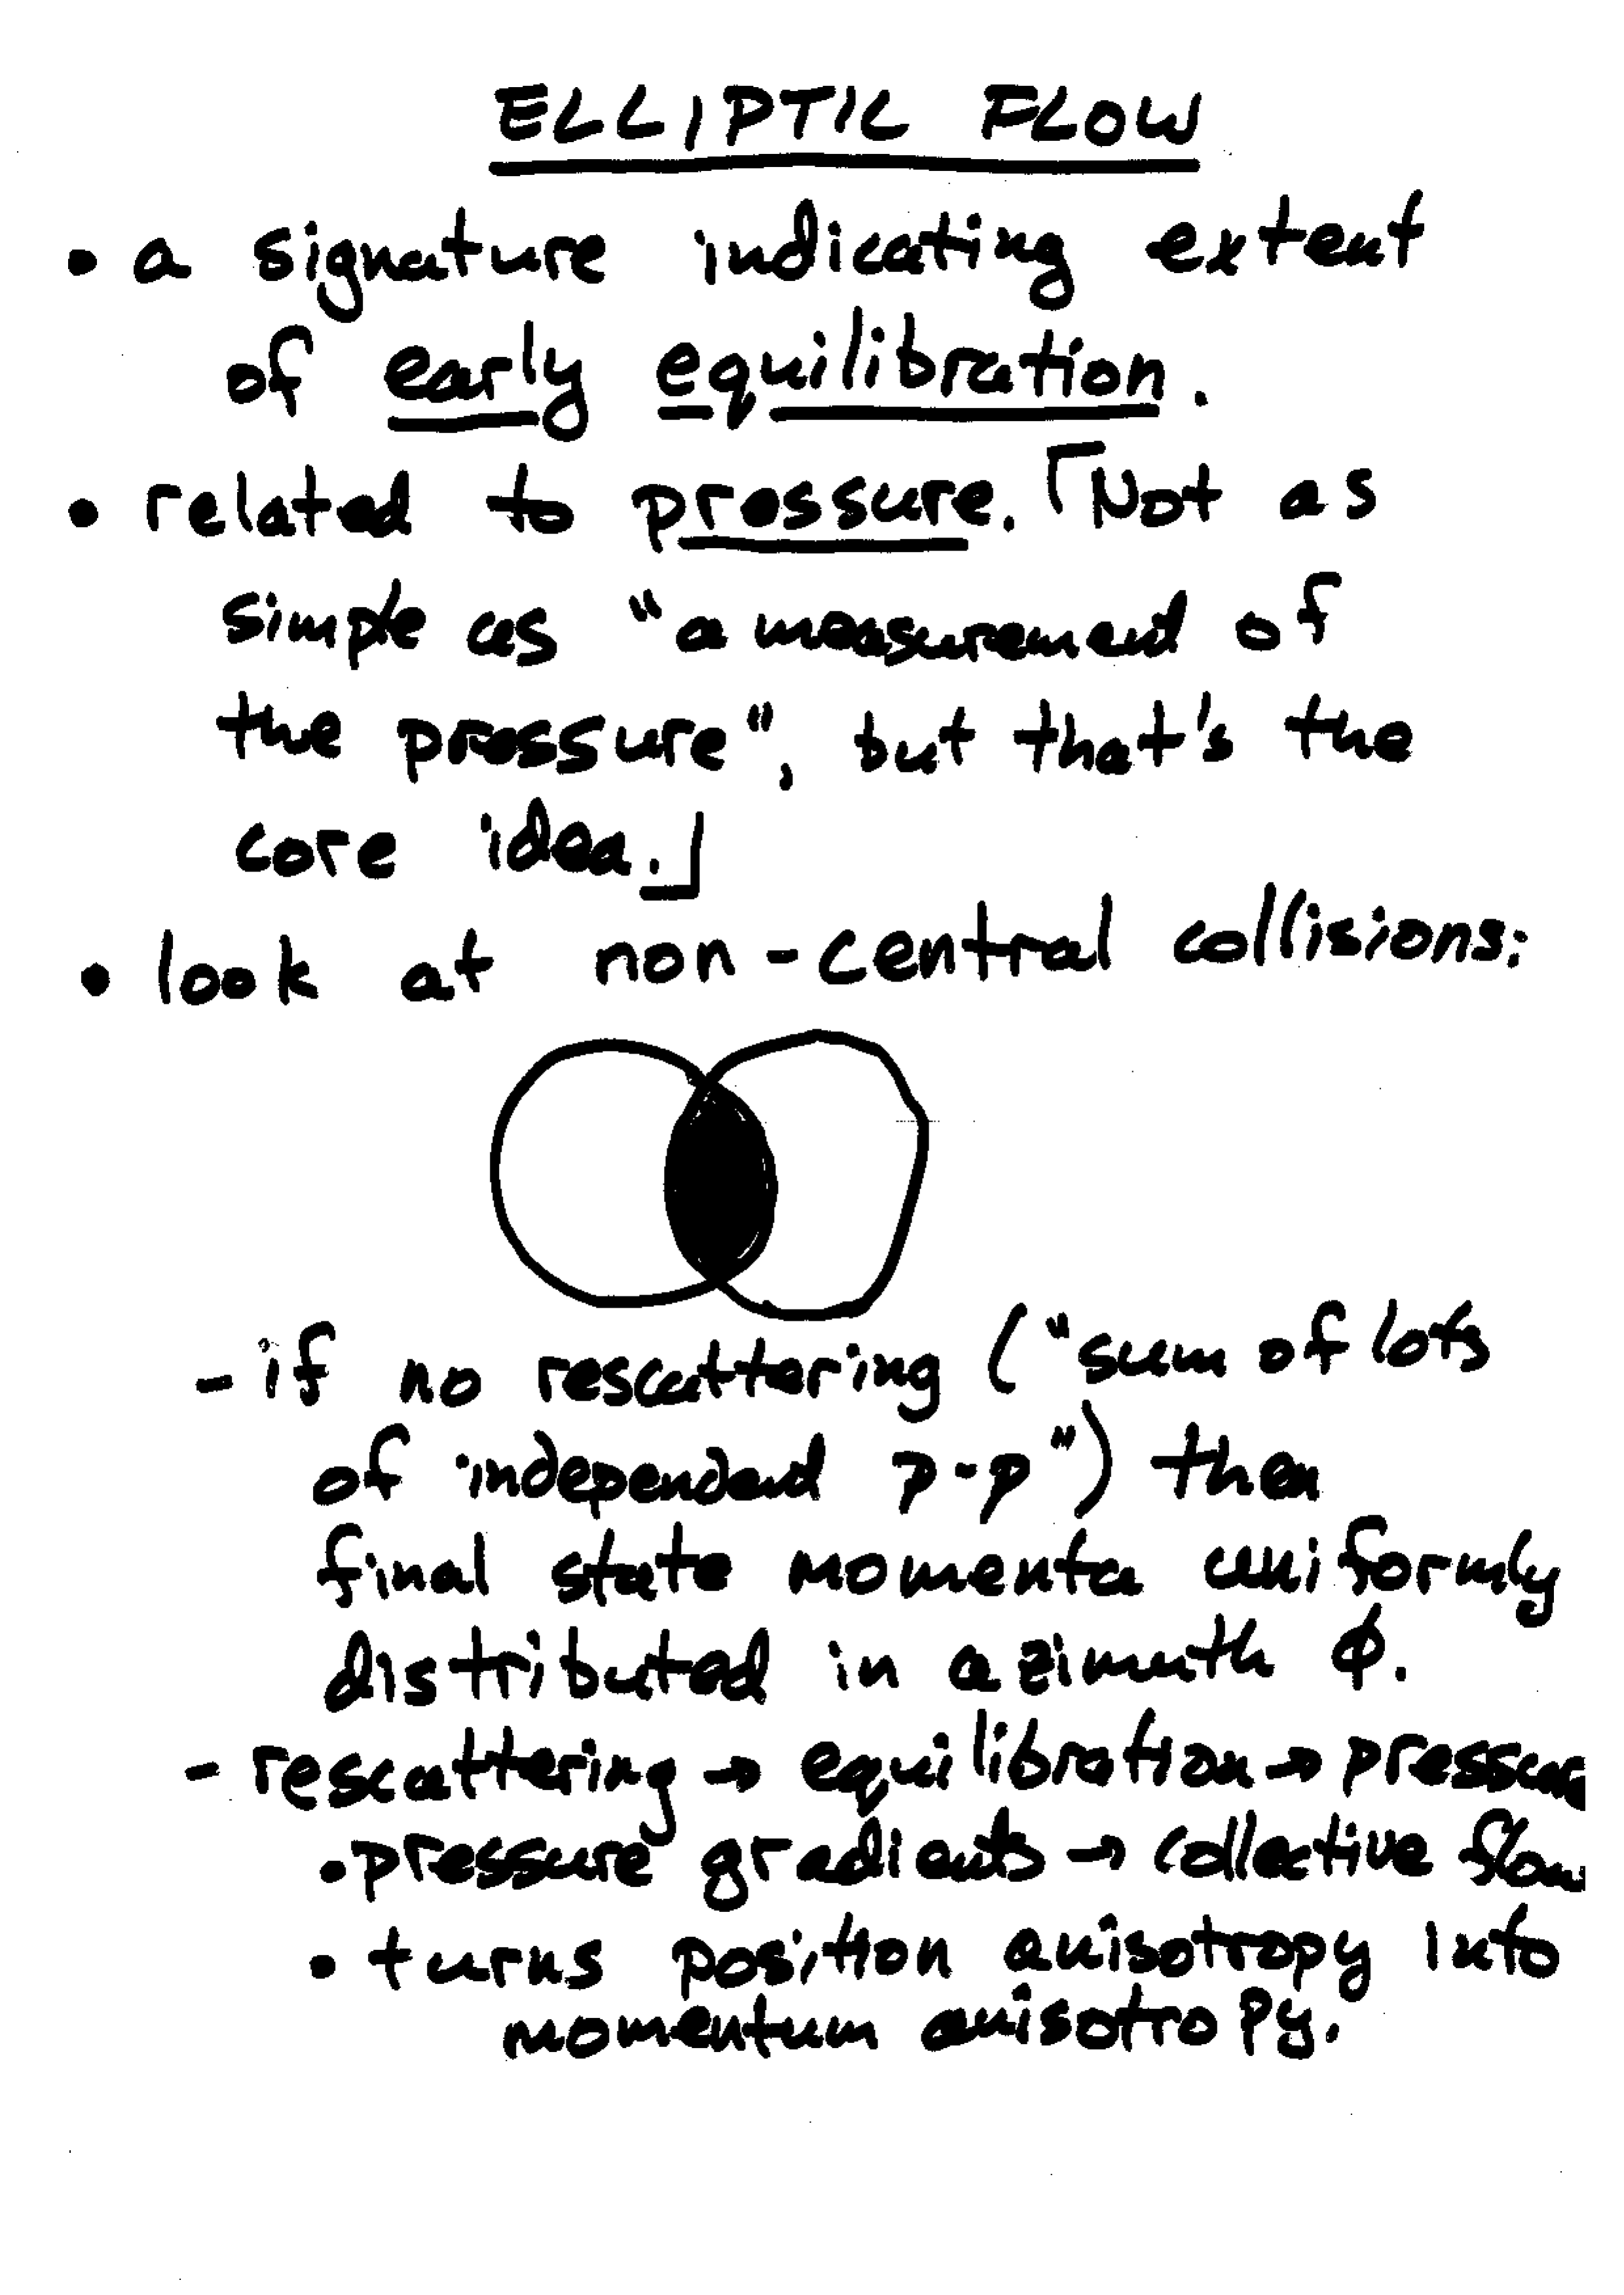 ELLIPTIC FLOW
• a signature indicating extent
of early equilibration.
• related to pressure. ⌈Not as
simple as "a measurement of
the pressure", but that's the
core idea.⌋
• look at non-central collisions:
- if no rescattering ("sum of lots
of independent p-p") then
final state momenta uniformly
distributed in azimuth ϕ.
- rescattering → equilibration → pressure
• pressure gradients → collective flow
• turns position anisotropy into
momentum anisotropy.